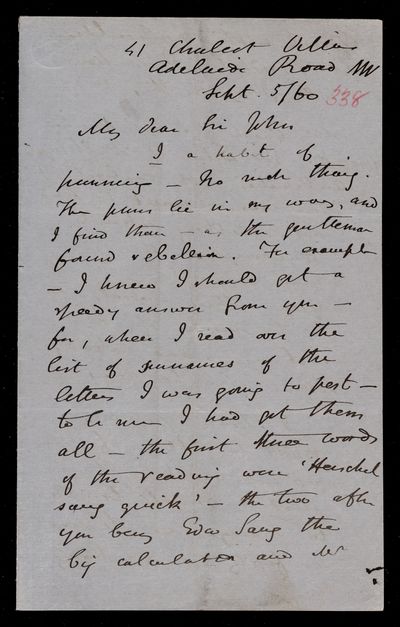 41 Chalcot Villas
Adelaide Road NW
Sept. 5/60
338
My dear Sir John
I a habit of
punning — No such thing.
The puns lie in my way, and
I find them — as the gentleman
found rebellion. For example
— I knew I should get a
speedy answer from you —
for, when I read over the
list of surnames of the
letters I was going to post —
to be sure I had got them
all — the first three words
of the reading were 'Herschel
sang quick' — the two after
you being Edw Sang the
big calculator and Mr